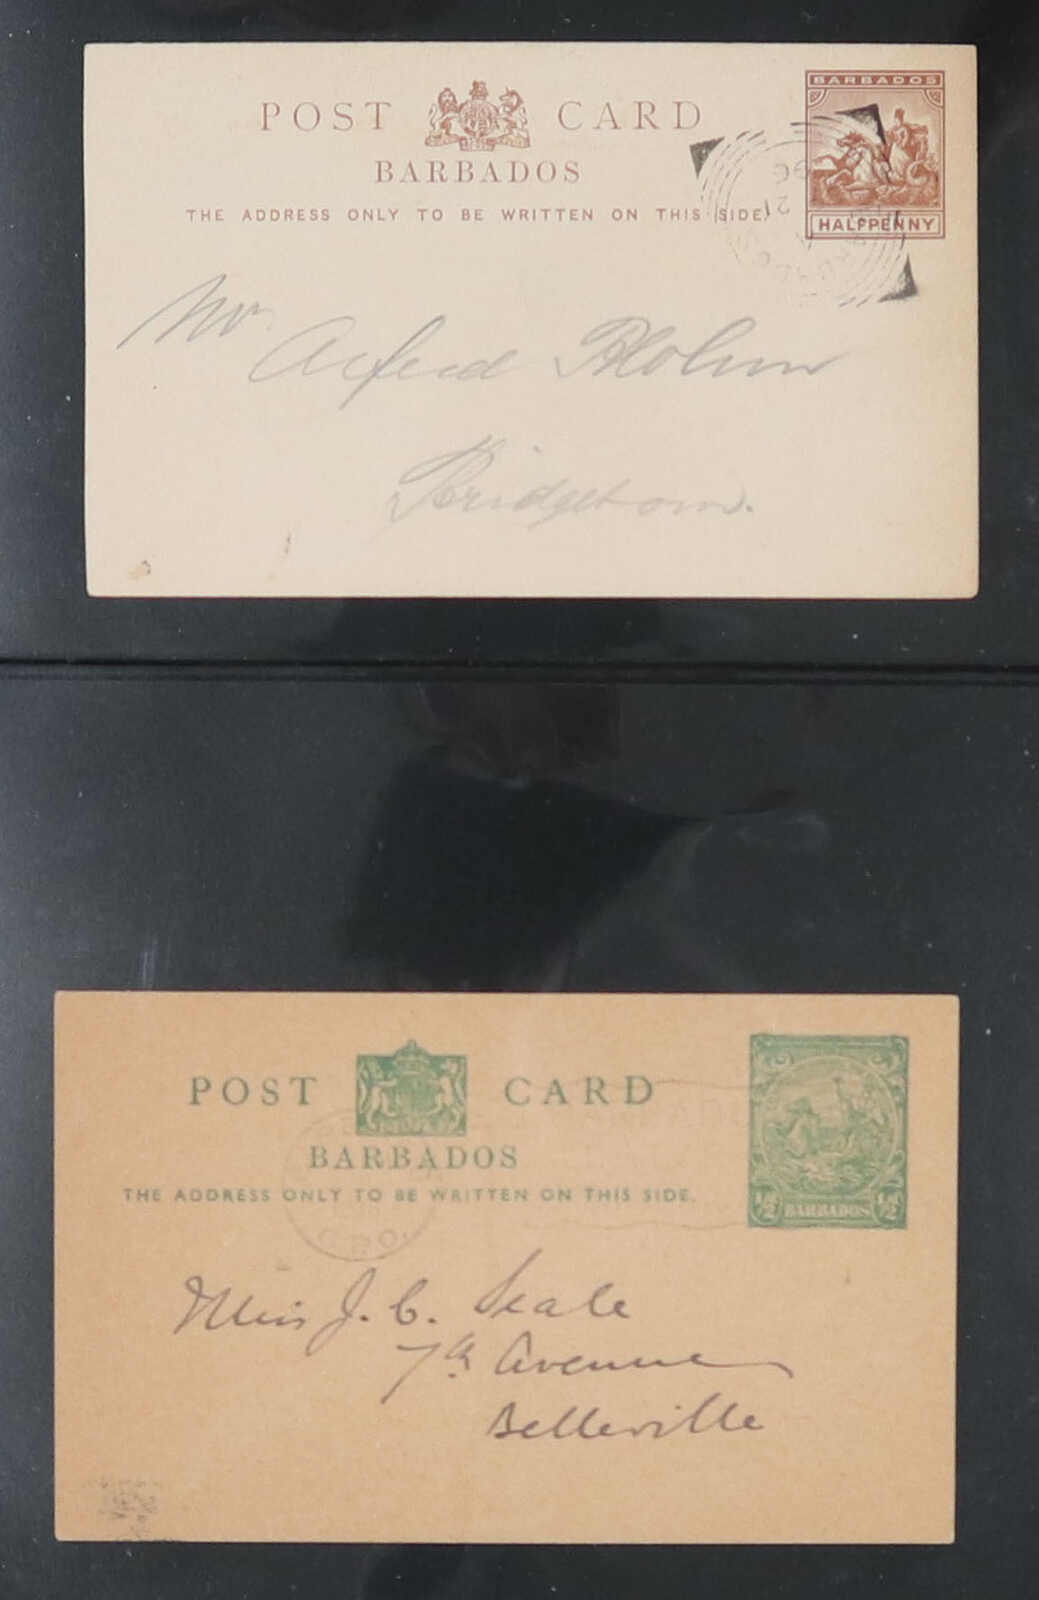 POST CARD
BARBADOS
THE ADDRESS ONLY TO BE WRITTEN ON THIS SIDE.
BARBADOS
HALFPENNY
21
96
Mr
Alfred
Bridgetown.
POST CARD
BARBADOS
THE ADDRESS ONLY TO BE WRITTEN ON THIS SIDE.
½d BARBADOS ½d
G.P.O.
Miss J. C. Seale
7th Avenue
Belleville